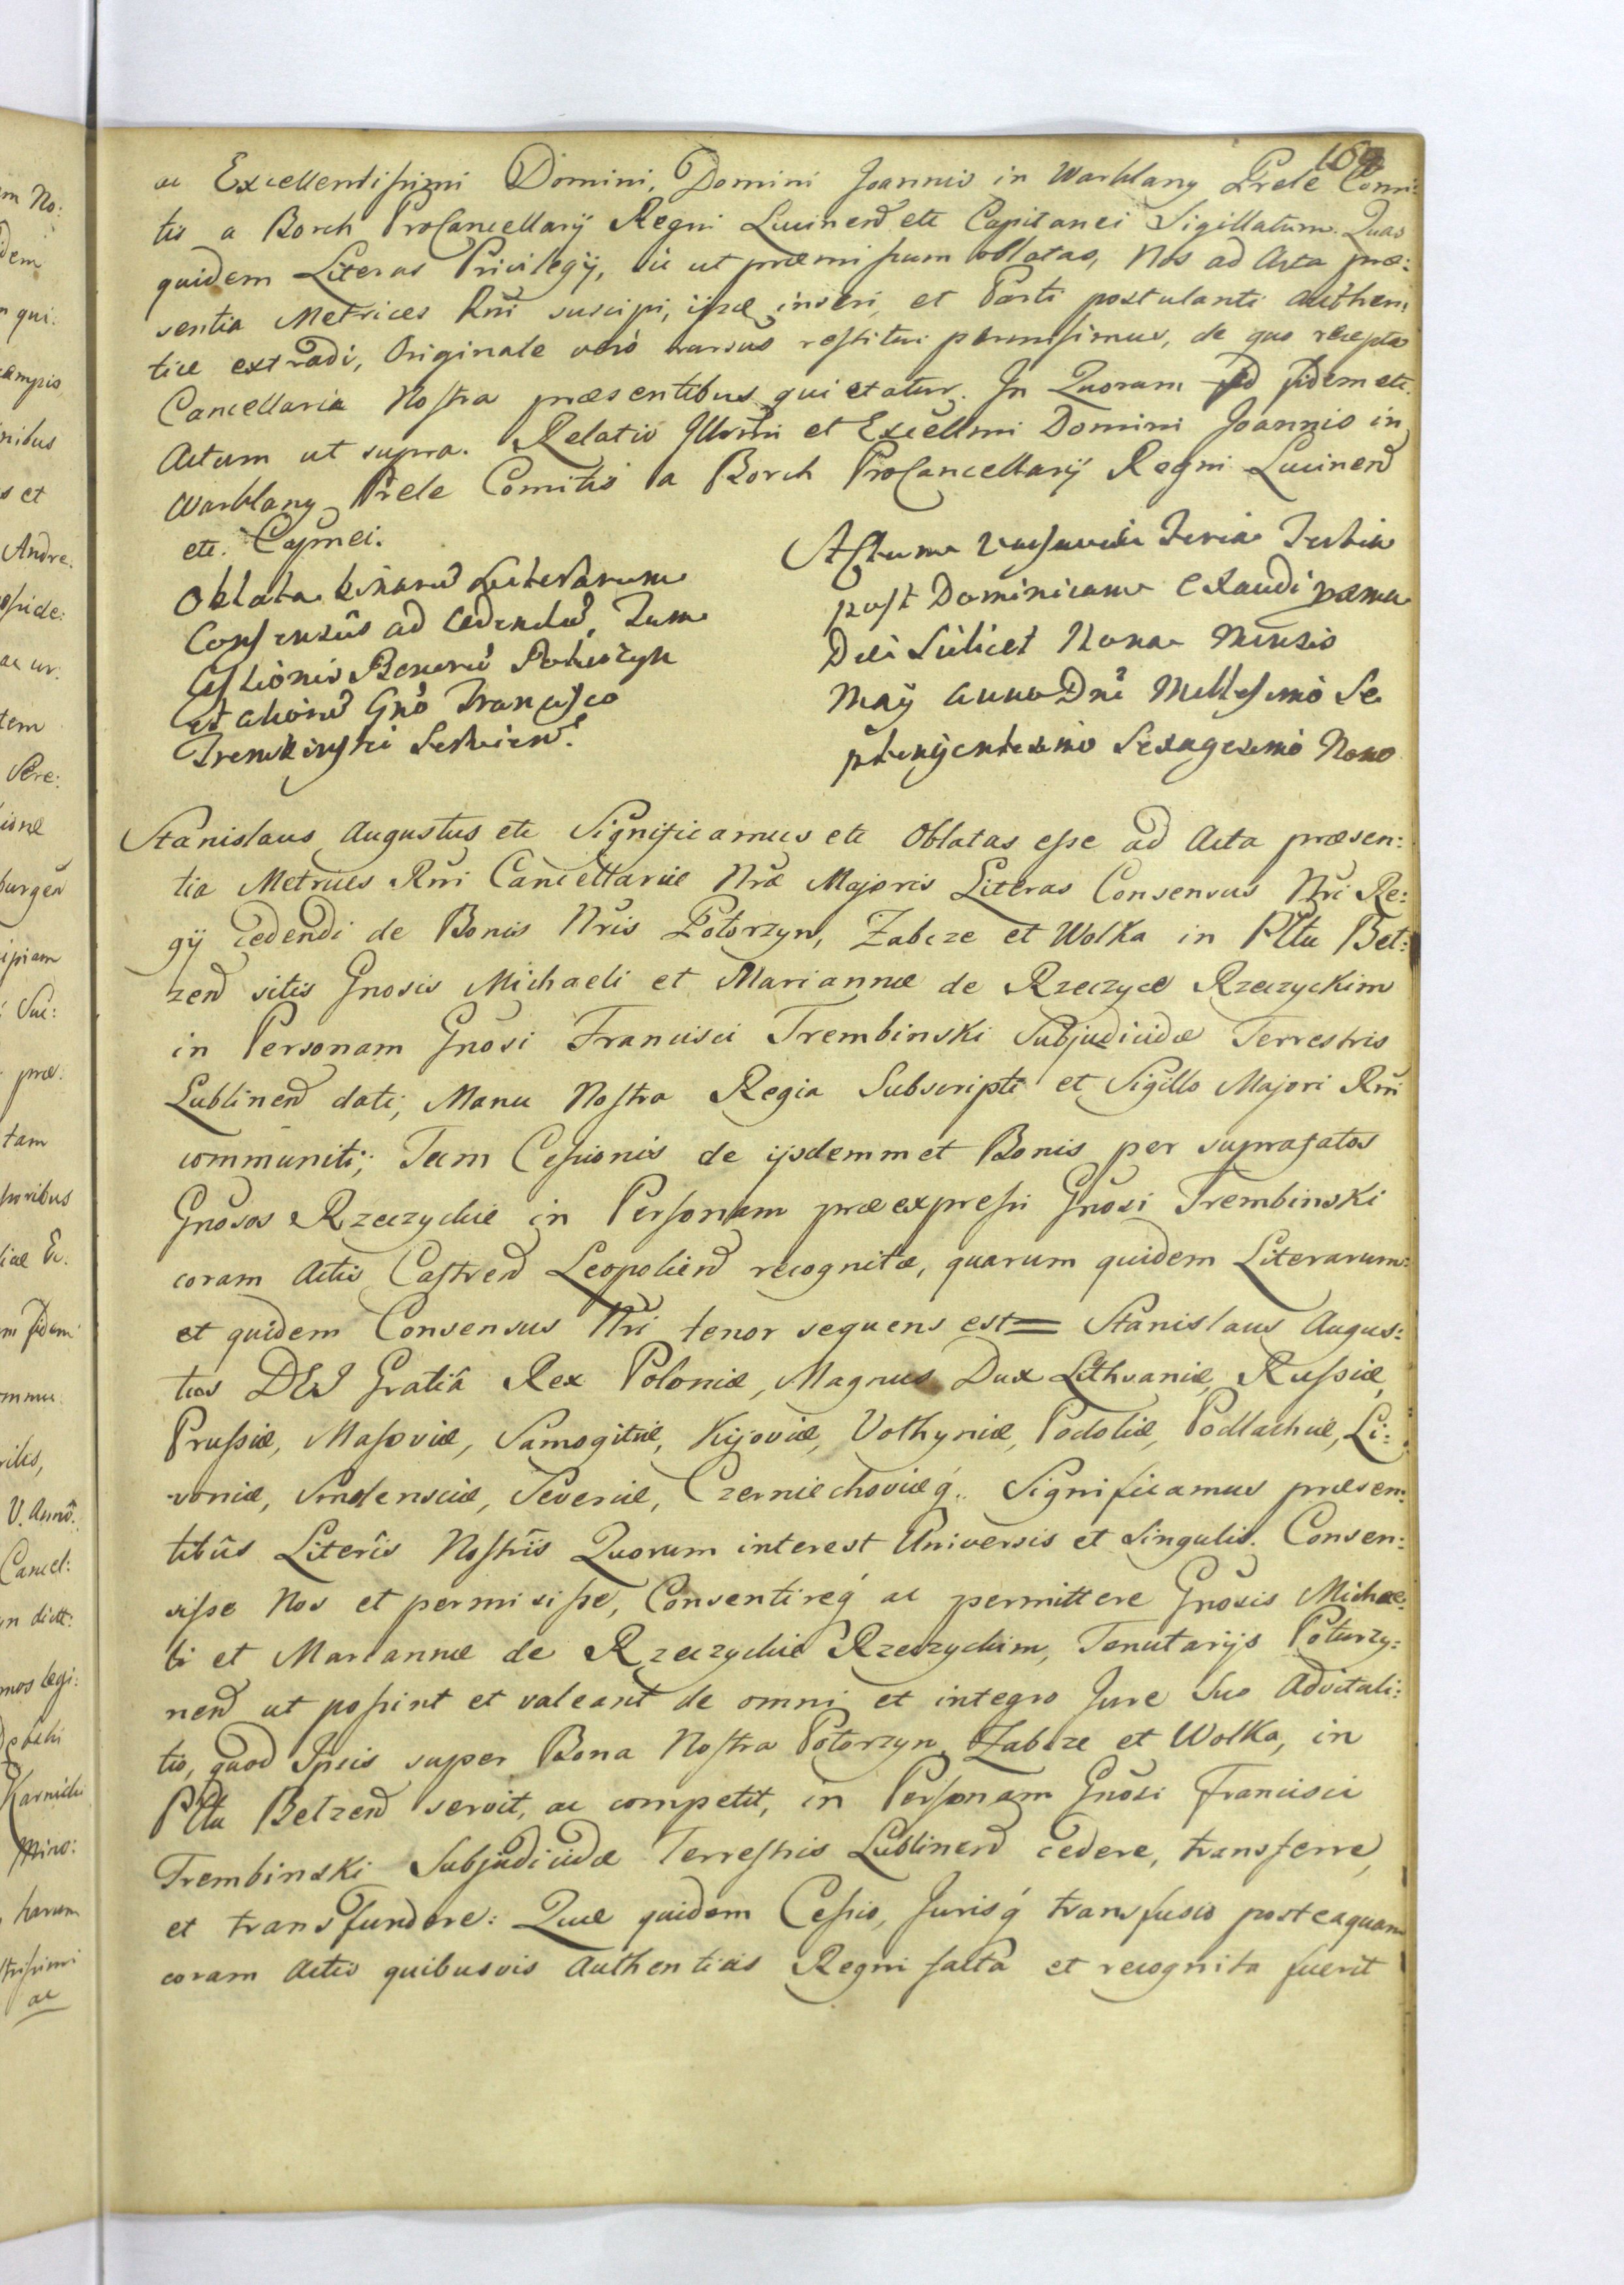 ac Excellentissimi Domini, Domini Joannis in Warklany Prele Comi:
tis a Borch ProCancellarij Regni Lucinen̄ etc Capitanei Sigillatum. Quas
quidem Literas Privilegij, sic ut præmissum oblatas, Nos ad Acta præ:
sentia Metrices Rni suscipi, ijsq́ inseri, et Parti postulanti authen:
tice extradi, Originale verò rursus restitui permisimus, de quo recepto
Cancellaria Nostra præsentibus quietatur. In Quorum fidem etc.
Actum ut supra. Relatio Illmi et Excellmi Domini Joannis in
Warklany Prele Comitis a Borch ProCancellarij Regni Lucinen̄
etc. Capnei.
Oblata binaru̅ Literarum
Consensûs ad cedendu̅, Tum
Cessionis Bonoru̅ Potorzyn
et alioru̅ Gnō Francisco
Trembinski Servien̄.
Actum Varsaviæ Feria Tertia
post Dominicam Exaudi proxima
Die Scilicet Nona Mensis
Maij Anno Dni Millesimo Se
ptingentesimo Sexagesimo Nono
Stanislaus Augustus etc Significamus etc Oblatas esse ad Acta præsen:
tia Metrices Rni Cancellariæ Nræ Majoris Literas Consensus Nri Re:
gij cedendi de Bonis Nris Potorzyn, Zabcze et Wolka in Pltu Bel:
zen̄ sitis Gnosis Michaeli et Mariannæ de Rzeczyce Rzeczyckim
in Personam Gnosi Francisci Trembinski Subjudicidæ Terrestris
Lublinen̄ dati, Manu Nostra Regia Subscripti et Sigillo Majori Rni
communiti; Tum Cessionis de ijsdemmet Bonis per suprafatos
Gnosos Rzeczyckie in Personam præexpressi Gnosi Trembinski
coram Actis Castren̄ Leopolien̄ recognitæ, quarum quidem Literarum
et quidem Consensus Nri tenor sequens est = Stanislaus Augus:
tus DEI Gratiâ Rex Poloniæ, Magnus Dux Lithvaniæ, Russiæ,
Prussiæ, Masoviæ, Samogitiæ, Kijoviæ, Volhyniæ, Podoliæ, Podlachiæ, Li:
voniæ, Smolensciæ, Severiæ, Czerniechoviæq́. Significamus præsen:
tibûs Literîs Nostrîs Quorum interest Universis et Singulis. Consen:
sisse Nos et permisisse, Consentireq́ ac permittere Gnosis Michae:
li et Mariannæ de Rzeczyckie Rzeczyckim, Tenutarijs Poturzy:
nen̄ ut possint et valeant de omni et integro Jure Suo Advitali:
tio, quod Ipsis super Bona Nostra Potorzyn, Zabcze et Wolka, in
Pltu Belzen̄ servit, ac competit, in Personam Gnosi Francisci
Trembinski Subjudicidæ Terrestris Lublinen̄ cedere, transferre,
et transfundere: Quæ quidem Cessio, Jurisq́ transfusio posteaquam
coram Actis quibusvis Authenticis Regni facta et recognita fuerit